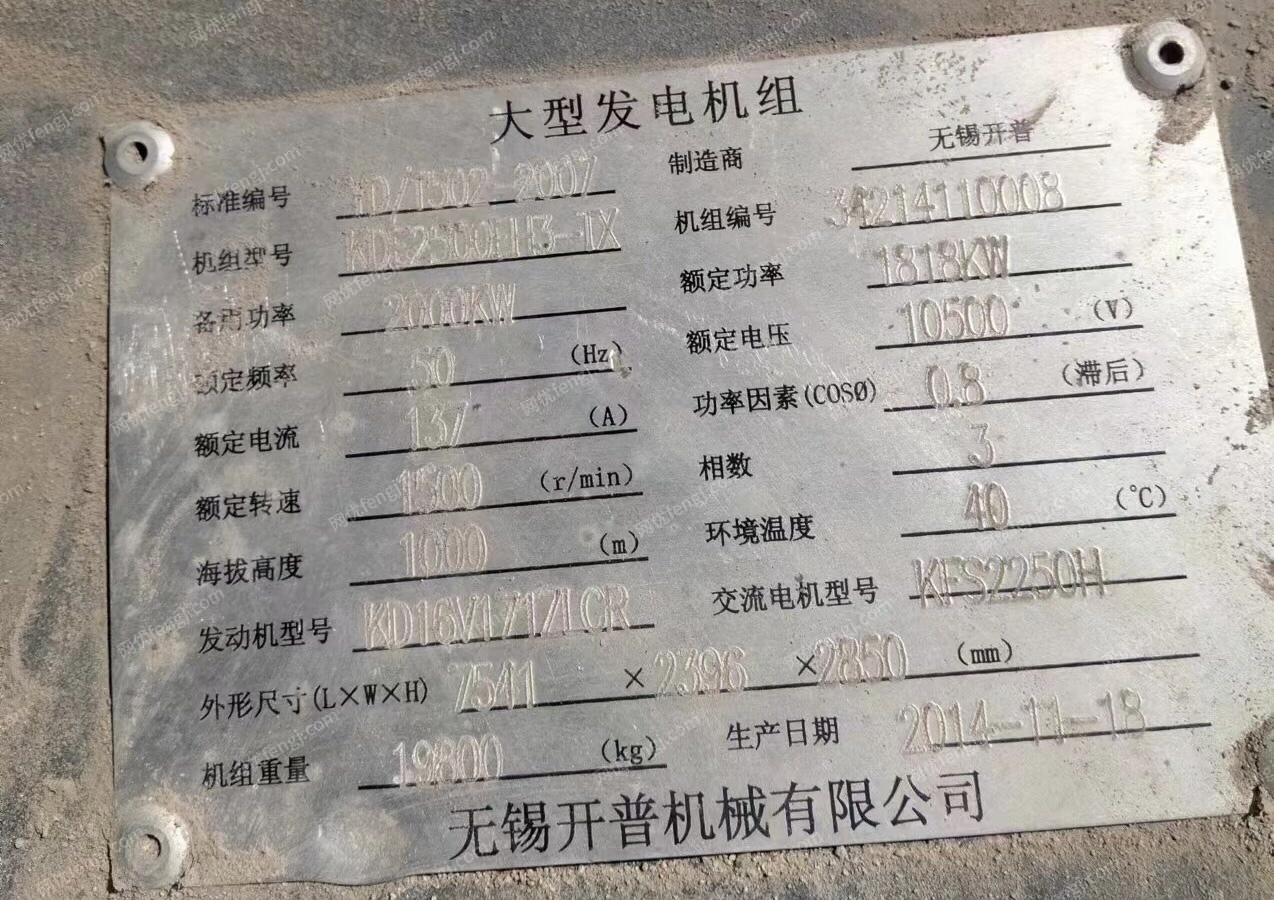 大型发电机组
标准编号 JD/T502-2007 制造商 无锡开普
机组型号 机组编号 34214110008
备用功率 2000KW 额定功率 1818KW
额定频率 50 (Hz) 额定电压 10500 (V)
额定电流 137 (A) 功率因素(COSØ) 0.8 (滞后)
额定转速 1500 (r/min) 相数 3
海拔高度 1000 (m) 环境温度 40 (℃)
发动机型号 交流电机型号 KFS2250H
外形尺寸(L×W×H) 7541 ×2396 ×2850 (mm)
机组重量 19800 (kg) 生产日期 2014-11-18
无锡开普机械有限公司